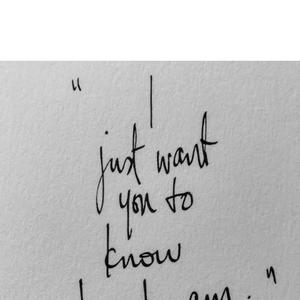 " I
just want
you to
know